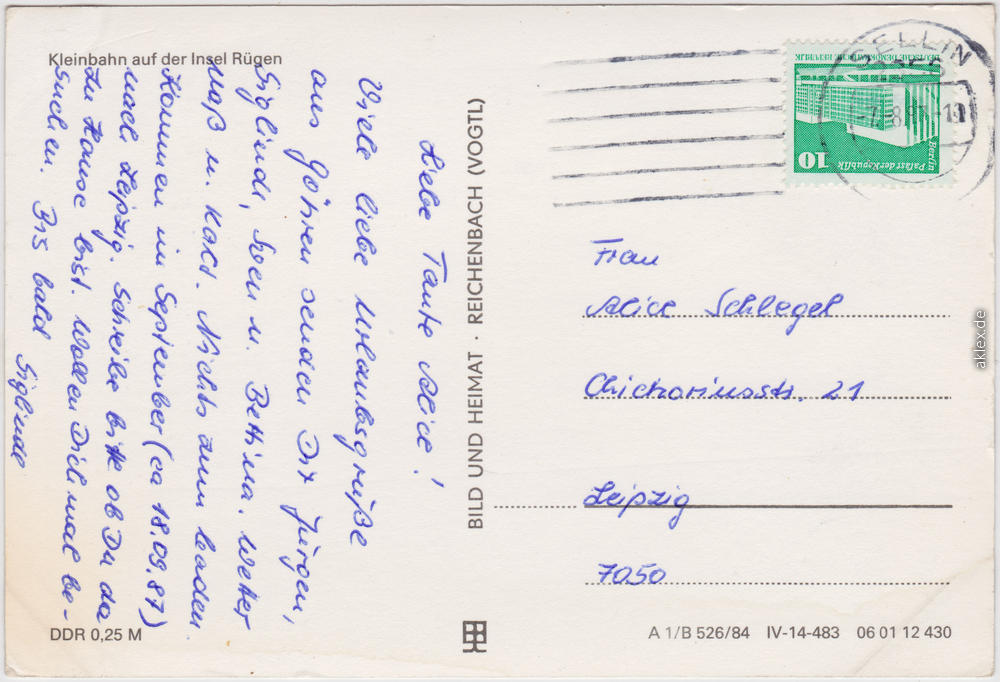 Kleinbahn auf der Insel Rügen
Liebe Tante Alice!
Viele liebe Urlaubsgrüße
aus Göhren senden Dir Jürgen,
Siglinde, Sven u. Bettina. Wetter
naß u. kalt. Nichts zum baden.
Kommen im September (ca 18.09.87)
nach Leipzig. Schreibe bitte ob Du da
zu Hause bist. Wollen Dich mal be-
suchen. Bis bald
Siglinde
DDR 0,25 M
BILD UND HEIMAT · REICHENBACH (VOGTL)
SELLIN
DEUTSCHE DEMOKRATISCHE REPUBLIK
Berlin
Palast der Republik
10
Frau
Alice Schlegel
Chichoriusstr. 21
Leipzig
7050
A 1/B 526/84 IV-14-483 06 01 12 430
aklex.de